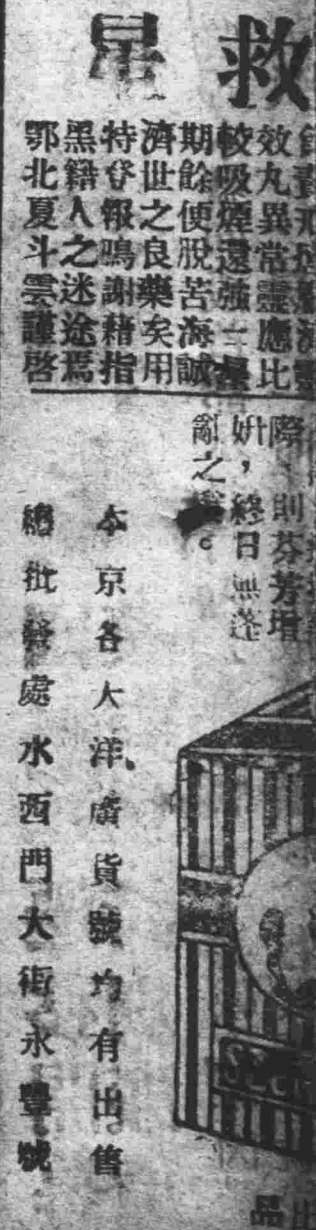 救星
效丸異常靈應比
較吸煙還強一
期餘使脫苦海誠
濟世之良藥矣用
特登報鳴謝藉指
黑籍人之迷途焉
鄂北夏斗雲謹啓
際、則芬芳增
妍，終日無蓬
亂之。
本京各大洋廣貨號均有出售
總批發處水西門大街永豐號
出品